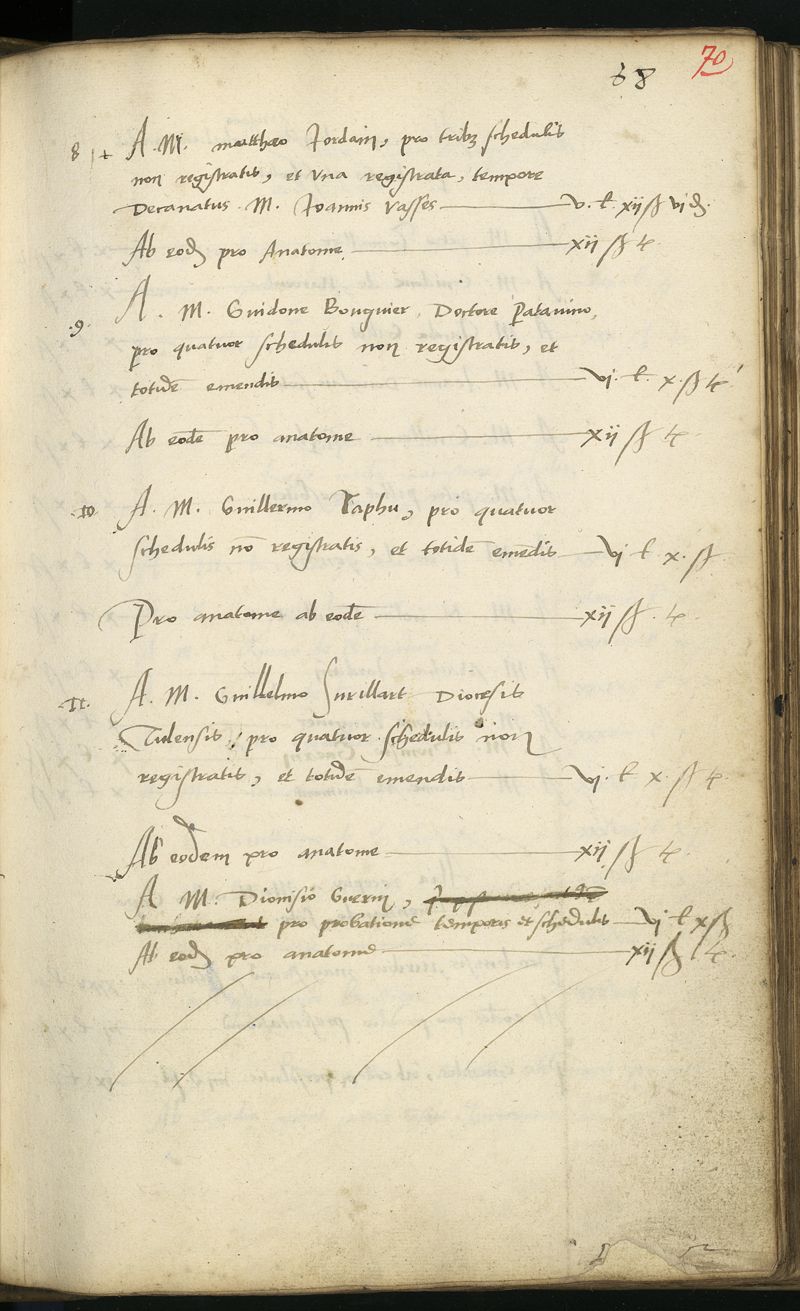 68 70
8 + A. M. mattheo Jordain, pro tribꝫ schedulis
non registratis, et una registrata, tempore
Decanatus M. Joannis Vasses v. l. xij ß vj d.
Ab eod pro Anatome xij ß t
.9. A. M. Guidone Bouguier, Doctore Patavino,
pro quatuor schedulis non registratis, et
totidē emendis vj. l. x. ß t
Ab eodē pro anatome xij ß t
.10. A. M. Guillermo Taphu, pro quatuor
schedulis nō registratis, et totidē emēdis vj l x. ß
Pro anatome ab eodē xij ß. t
.11. A. M. Guillelmo Jurillart Diocesis
Tulensis, pro quatuor schedulis non
registratis, et totidē emendis vj. l x ß t
Ab eodem pro anatome xij ß t
A M. Dionisio Guerin,
pro probationē temporis et schedulis vj l x ß
Ab eod pro anatome xij ß t